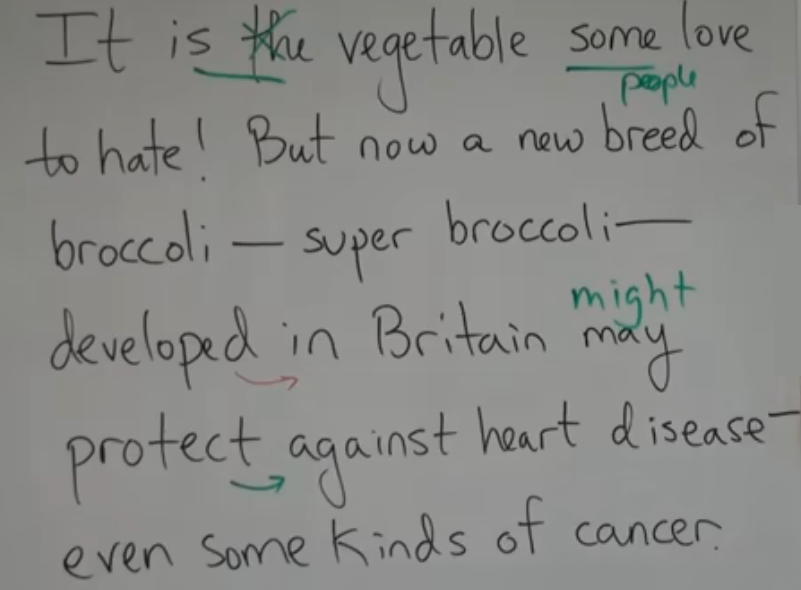 It is the vegetable some love
people
to hate! But now a new breed of
broccoli — super broccoli—
might
developed in Britain may
protect against heart disease—
even some kinds of cancer.